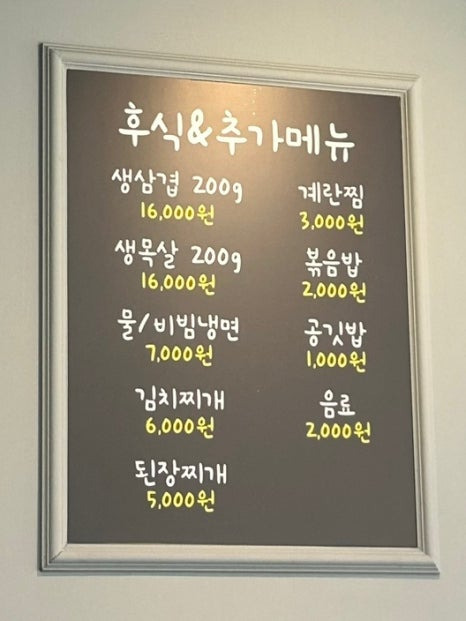 후식&추가메뉴
생삼겹 200g
16,000원
생목살 200g
16,000원
물/비빔냉면
7,000원
김치찌개
6,000원
된장찌개
5,000원
계란찜
3,000원
볶음밥
2,000원
공깃밥
1,000원
음료
2,000원